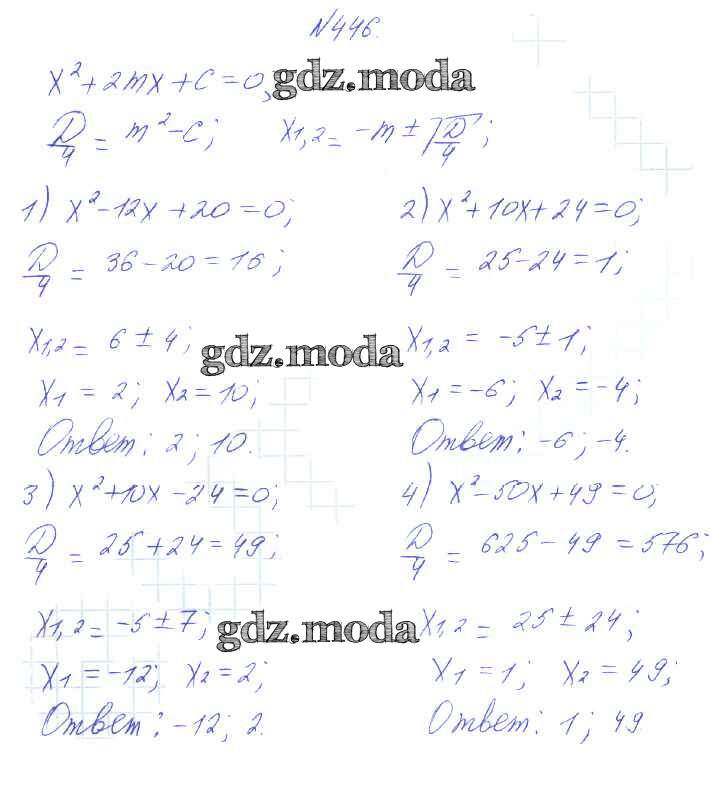 №446.
x²+2mx+c=0, gdz.moda
D/4 = m²-c; x1,2 = -m ± √D/4;
1) x²-12x+20=0;
D/4 = 36-20=16;
x1,2 = 6 ± 4; gdz.moda
x1 = 2; x2=10;
Ответ: 2; 10.
2) x²+10x+24=0;
D/4 = 25-24=1;
x1,2 = -5±1;
x1=-6; x2=-4;
Ответ: -6; -4.
3) x²+10x-24=0;
D/4 = 25+24=49;
x1,2 = -5±7; gdz.moda
x1=-12; x2=2;
Ответ: -12; 2.
4) x²-50x+49=0;
D/4 = 625-49=576;
x1,2 = 25 ± 24;
x1=1; x2=49;
Ответ: 1; 49